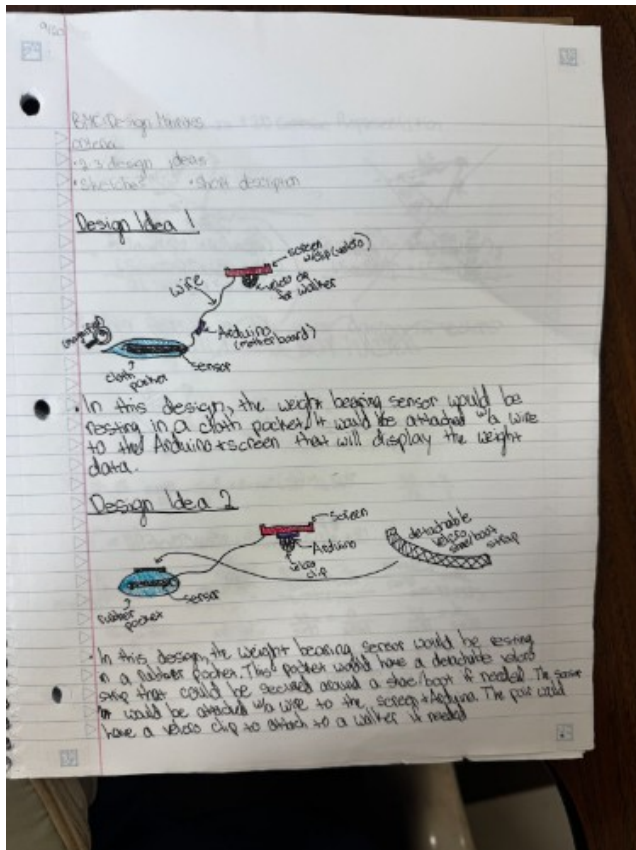 9/20
BMC: Design
criteria
• 2-3 design ideas
• Sketches • Short description
Design Idea 1
screen
w/clip (velcro)
wire
velcro
for walker
Arduino
(motherboard)
sensor
cloth
pocket
• In this design, the weight bearing sensor would be
resting in a cloth pocket. It would be attached w/a wire
to the Arduino + screen that will display the weight
data.
Design Idea 2
screen
Arduino
velcro
clip
detachable
velcro
shoe/boot
strap
sensor
rubber
pocket
• In this design, the weight bearing sensor would be resting
in a rubber pocket. This pocket would have a detachable velcro
strip that could be secured around a shoe/boot if needed. The
would be attached w/a wire to the screen + Arduino. The would
have a velcro clip to attach to a walker if needed